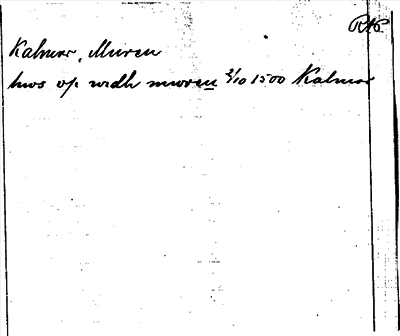 RAP.
Kalmar, Muren
hws op widh muren 2/10 1500 Kalmar